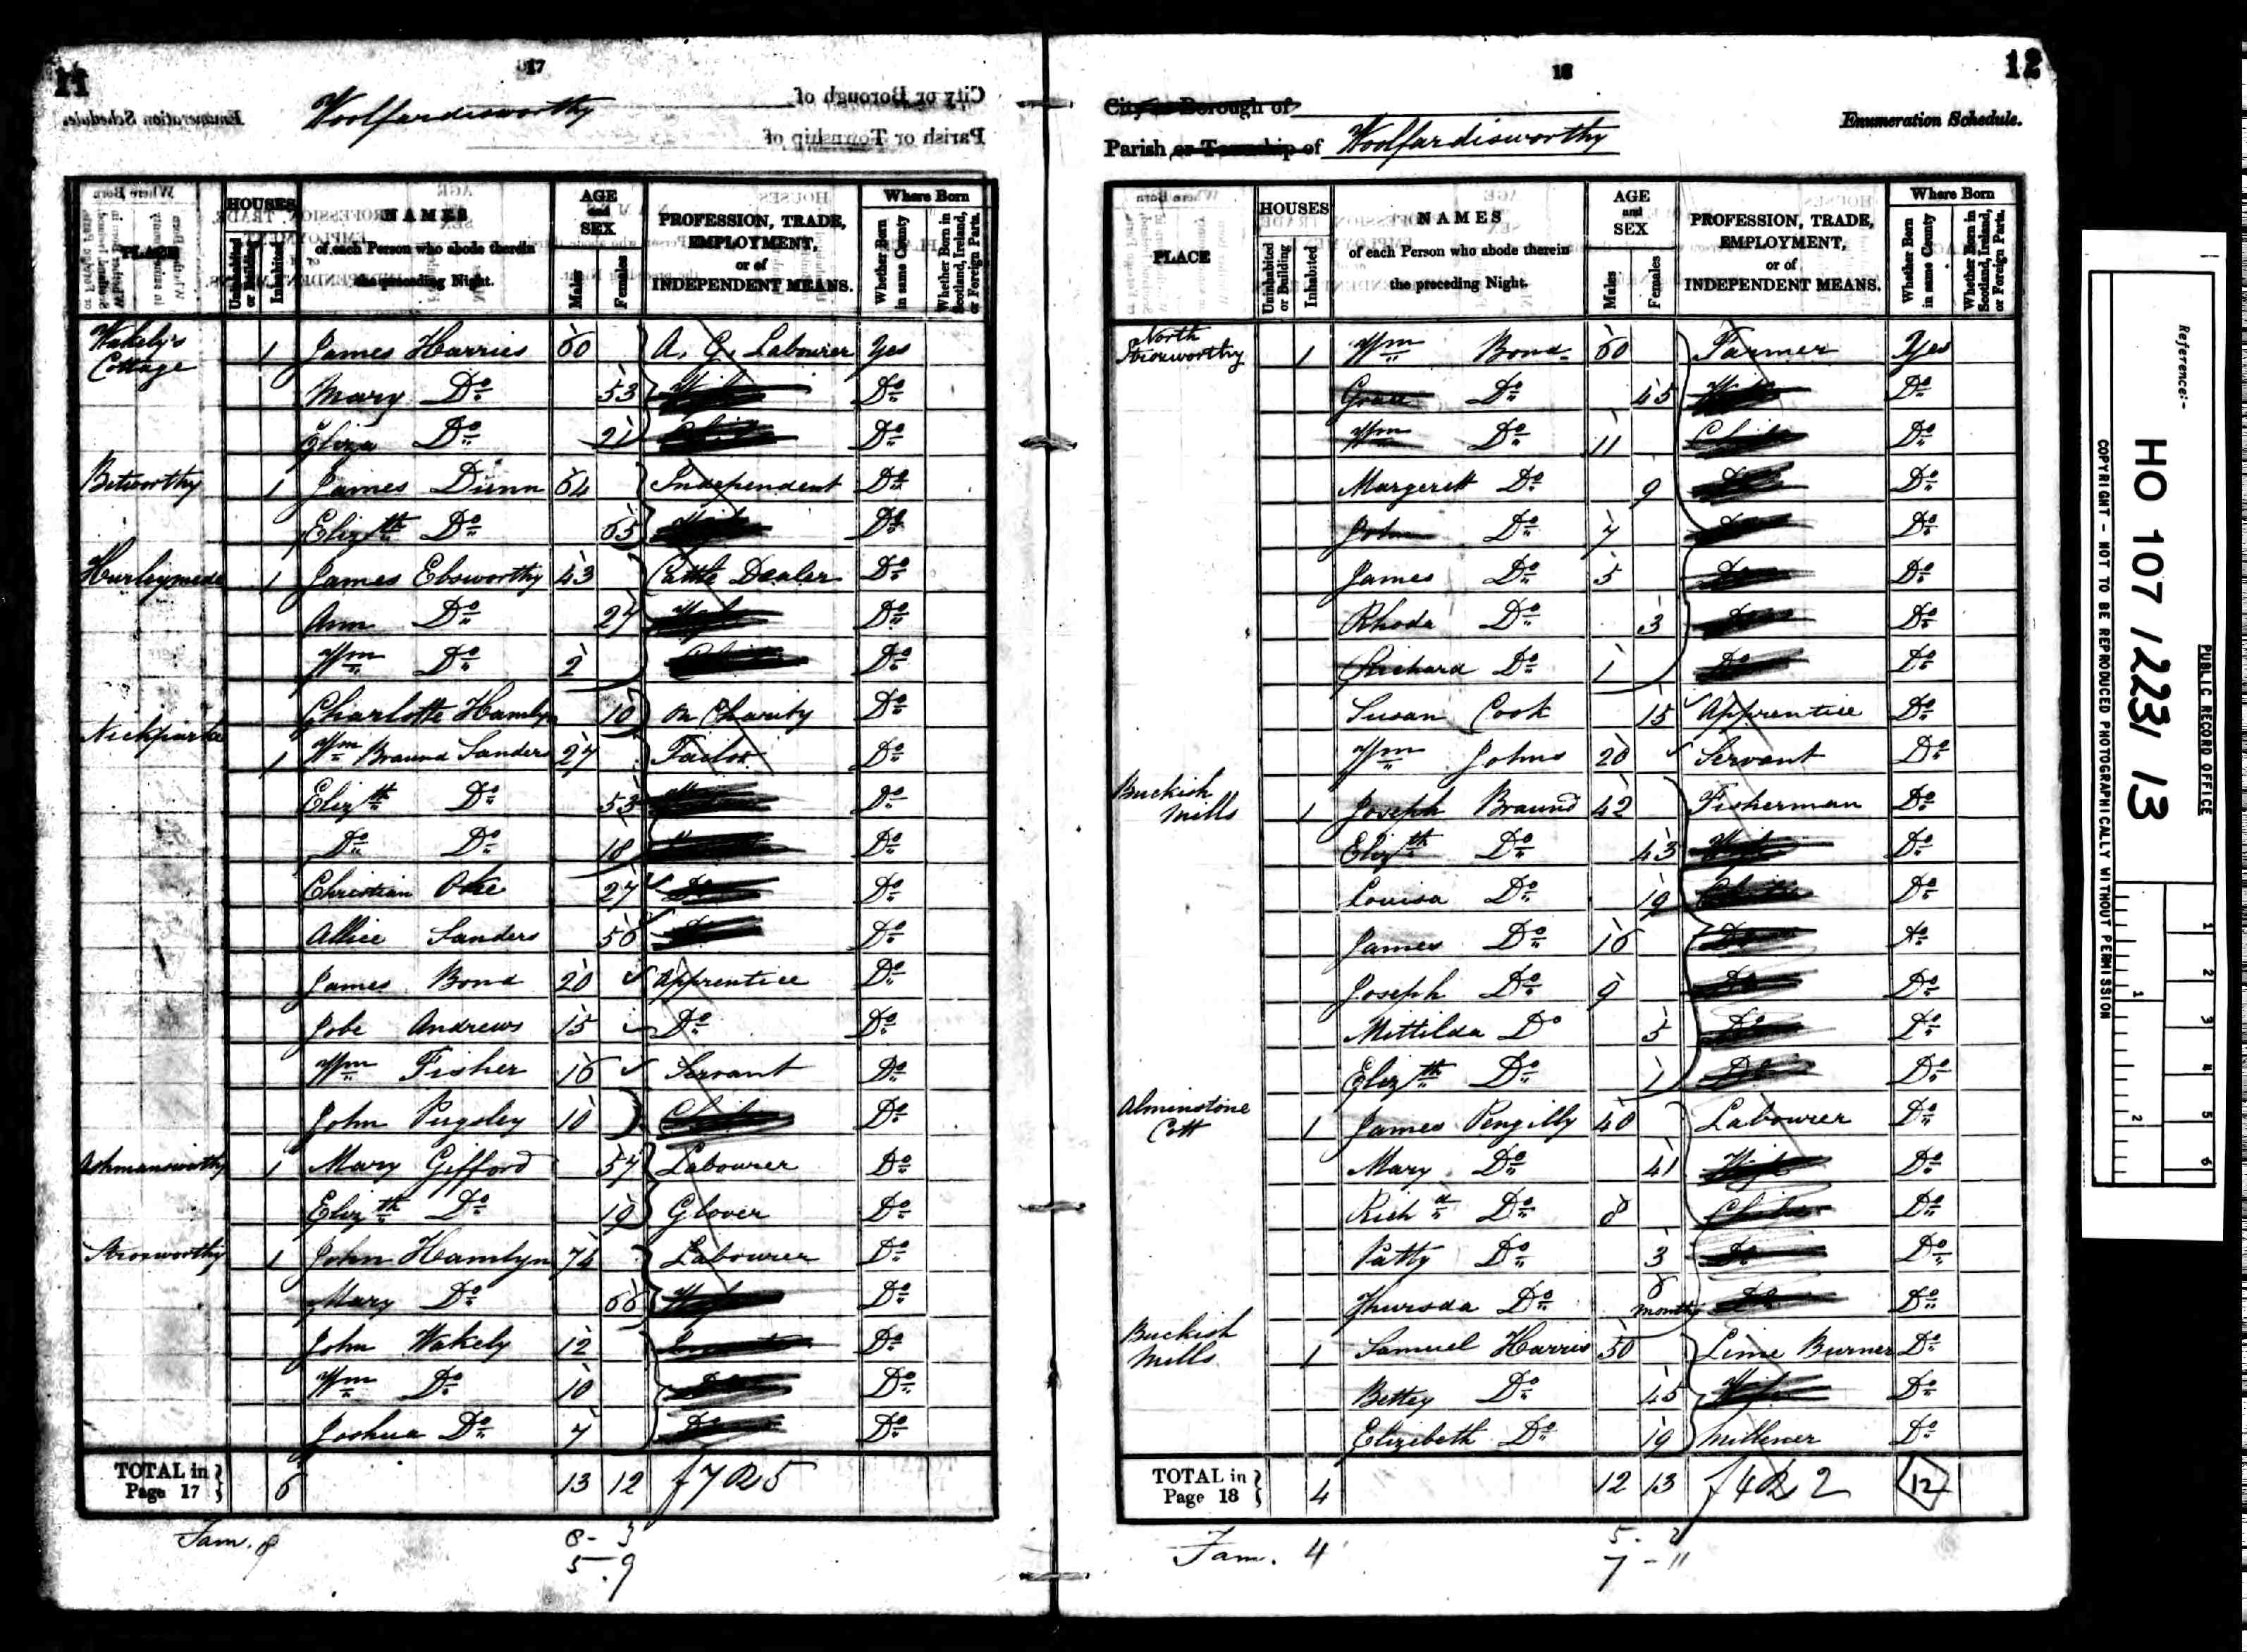 11
17
Enumeration Schedule.
Woolfardisworthy
City or Borough of
Parish or Township of
PLACE
HOUSES
Uninhabited or Building
Inhabited
NAMES
of each Person who abode therein
the preceding Night.
AGE and SEX
Males
Females
PROFESSION, TRADE, EMPLOYMENT,
or of
INDEPENDENT MEANS.
Where Born
Whether Born in same County
Whether Born in Scotland, Ireland, or Foreign Parts.
Wakely's Cottage 1 James Harries 60 A. G. Labourer Yes
Mary Do 53 Do
Eliza Do 21 Do
Bitworthy 1 James Dunn 64 Independent Do
Elizth Do 65 Do
Hurleymede 1 James Ebsworthy 43 Cattle Dealer Do
Ann Do 27 Do
Wm Do 2 Do
Charlotte Hamlyn 10 on Charity Do
1 Wm Braund Sanders 27 Tailor Do
Elizth Do 53 Do
Do Do 18 Do
Christian Oke 27 Do Do
Allice Sanders 56 Do
James Bond 20 Apprentice Do
Jobe Andrews 15 Do Do
Wm Fisher 16 Servant Do
John Pugsley 10 Do
Ashmansworthy 1 Mary Gifford 57 Labourer Do
Elizth Do 19 Glover Do
Stroxworthy 1 John Hamlyn 74 Labourer Do
Mary Do 66 Wife Do
John Wakely 12 Do
Wm Do 10 Do Do
Joshua Do 7 Do Do
TOTAL in Page 17 6 13 12
Fam. 8
8 - 3
5 . 9
18
12
City or Borough of
Enumeration Schedule.
Parish or Township of Woolfardisworthy
PLACE
HOUSES
Uninhabited or Building
Inhabited
NAMES
of each Person who abode therein
the preceding Night.
AGE and SEX
Males
Females
PROFESSION, TRADE, EMPLOYMENT,
or of
INDEPENDENT MEANS.
Where Born
Whether Born in same County
Whether Born in Scotland, Ireland, or Foreign Parts.
North Stroxworthy 1 Wm Bond 60 Farmer Yes
Grace Do 45 Do
Wm Do 11 Child Do
Margerett Do 9 Do Do
John Do 7 Do Do
James Do 5 Do Do
Rhoda Do 3 Do Do
Richard Do 1 Do Do
Susan Cook 15 Apprentice Do
Wm Johns 20 Servant Do
Buckish Mills 1 Joseph Braund 42 Fisherman Do
Elizth Do 43 Wife Do
Louisa Do 19 Do
James Do 16 Do Do
Joseph Do 9 Do Do
Mittilda Do 5 Do Do
Elizth Do 1 Do Do
Alminstone Cott 1 James Pengilly 40 Labourer Do
Mary Do 41 Wife Do
Richd Do 8 Do
Patty Do 3 Do Do
Thursda Do 6 months Do Do
Buckish Mills 1 Samuel Harris 50 Lime Burner Do
Bettey Do 45 Wife Do
Elizebeth Do 19 Millener Do
TOTAL in Page 18 4 12 13 12
Fam. 4
5 - 2
7 - 11
Reference:-
HO 107 / 223 / 13
PUBLIC RECORD OFFICE
COPYRIGHT - NOT TO BE REPRODUCED PHOTOGRAPHICALLY WITHOUT PERMISSION
1 2 3 4 5 6
1 2